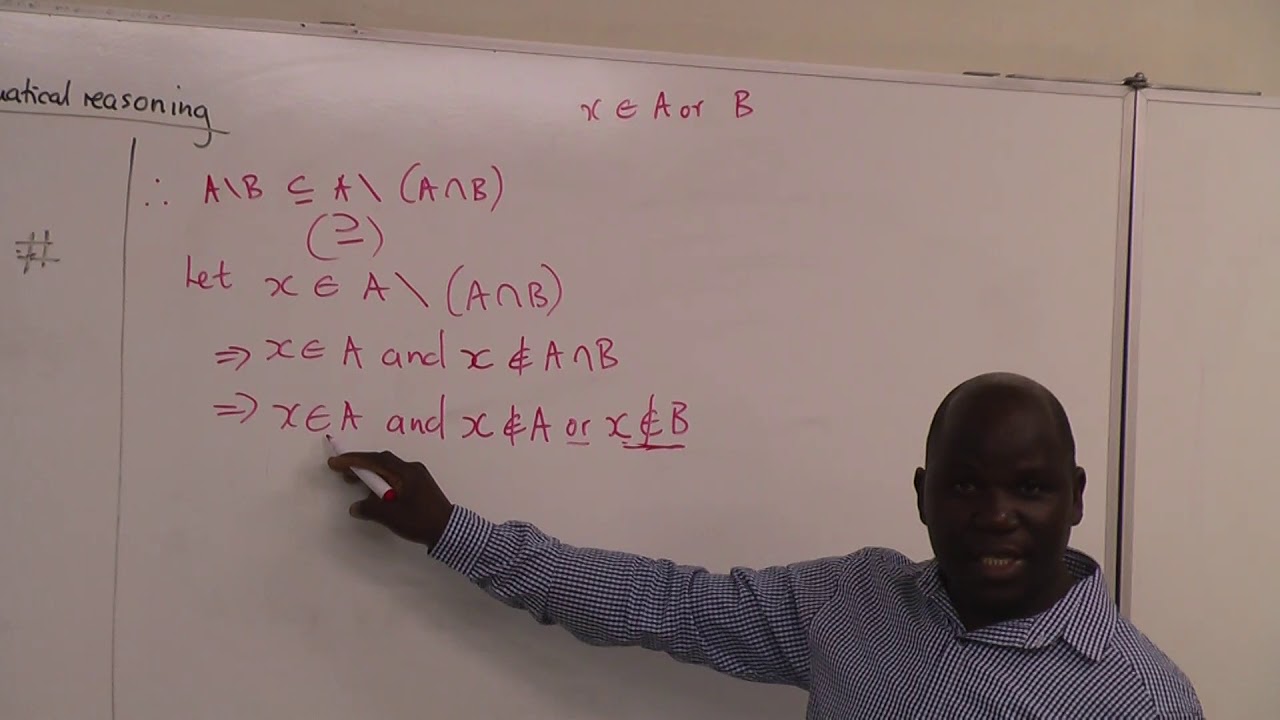 reasoning
x ∈ A or B
∴ A\B ⊆ A\ (A∩B)
(⊇)
#
Let x ∈ A \ (A∩B)
⇒ x ∈ A and x ∉ A∩B
⇒ x ∈ A and x ∉ A or x ∉ B